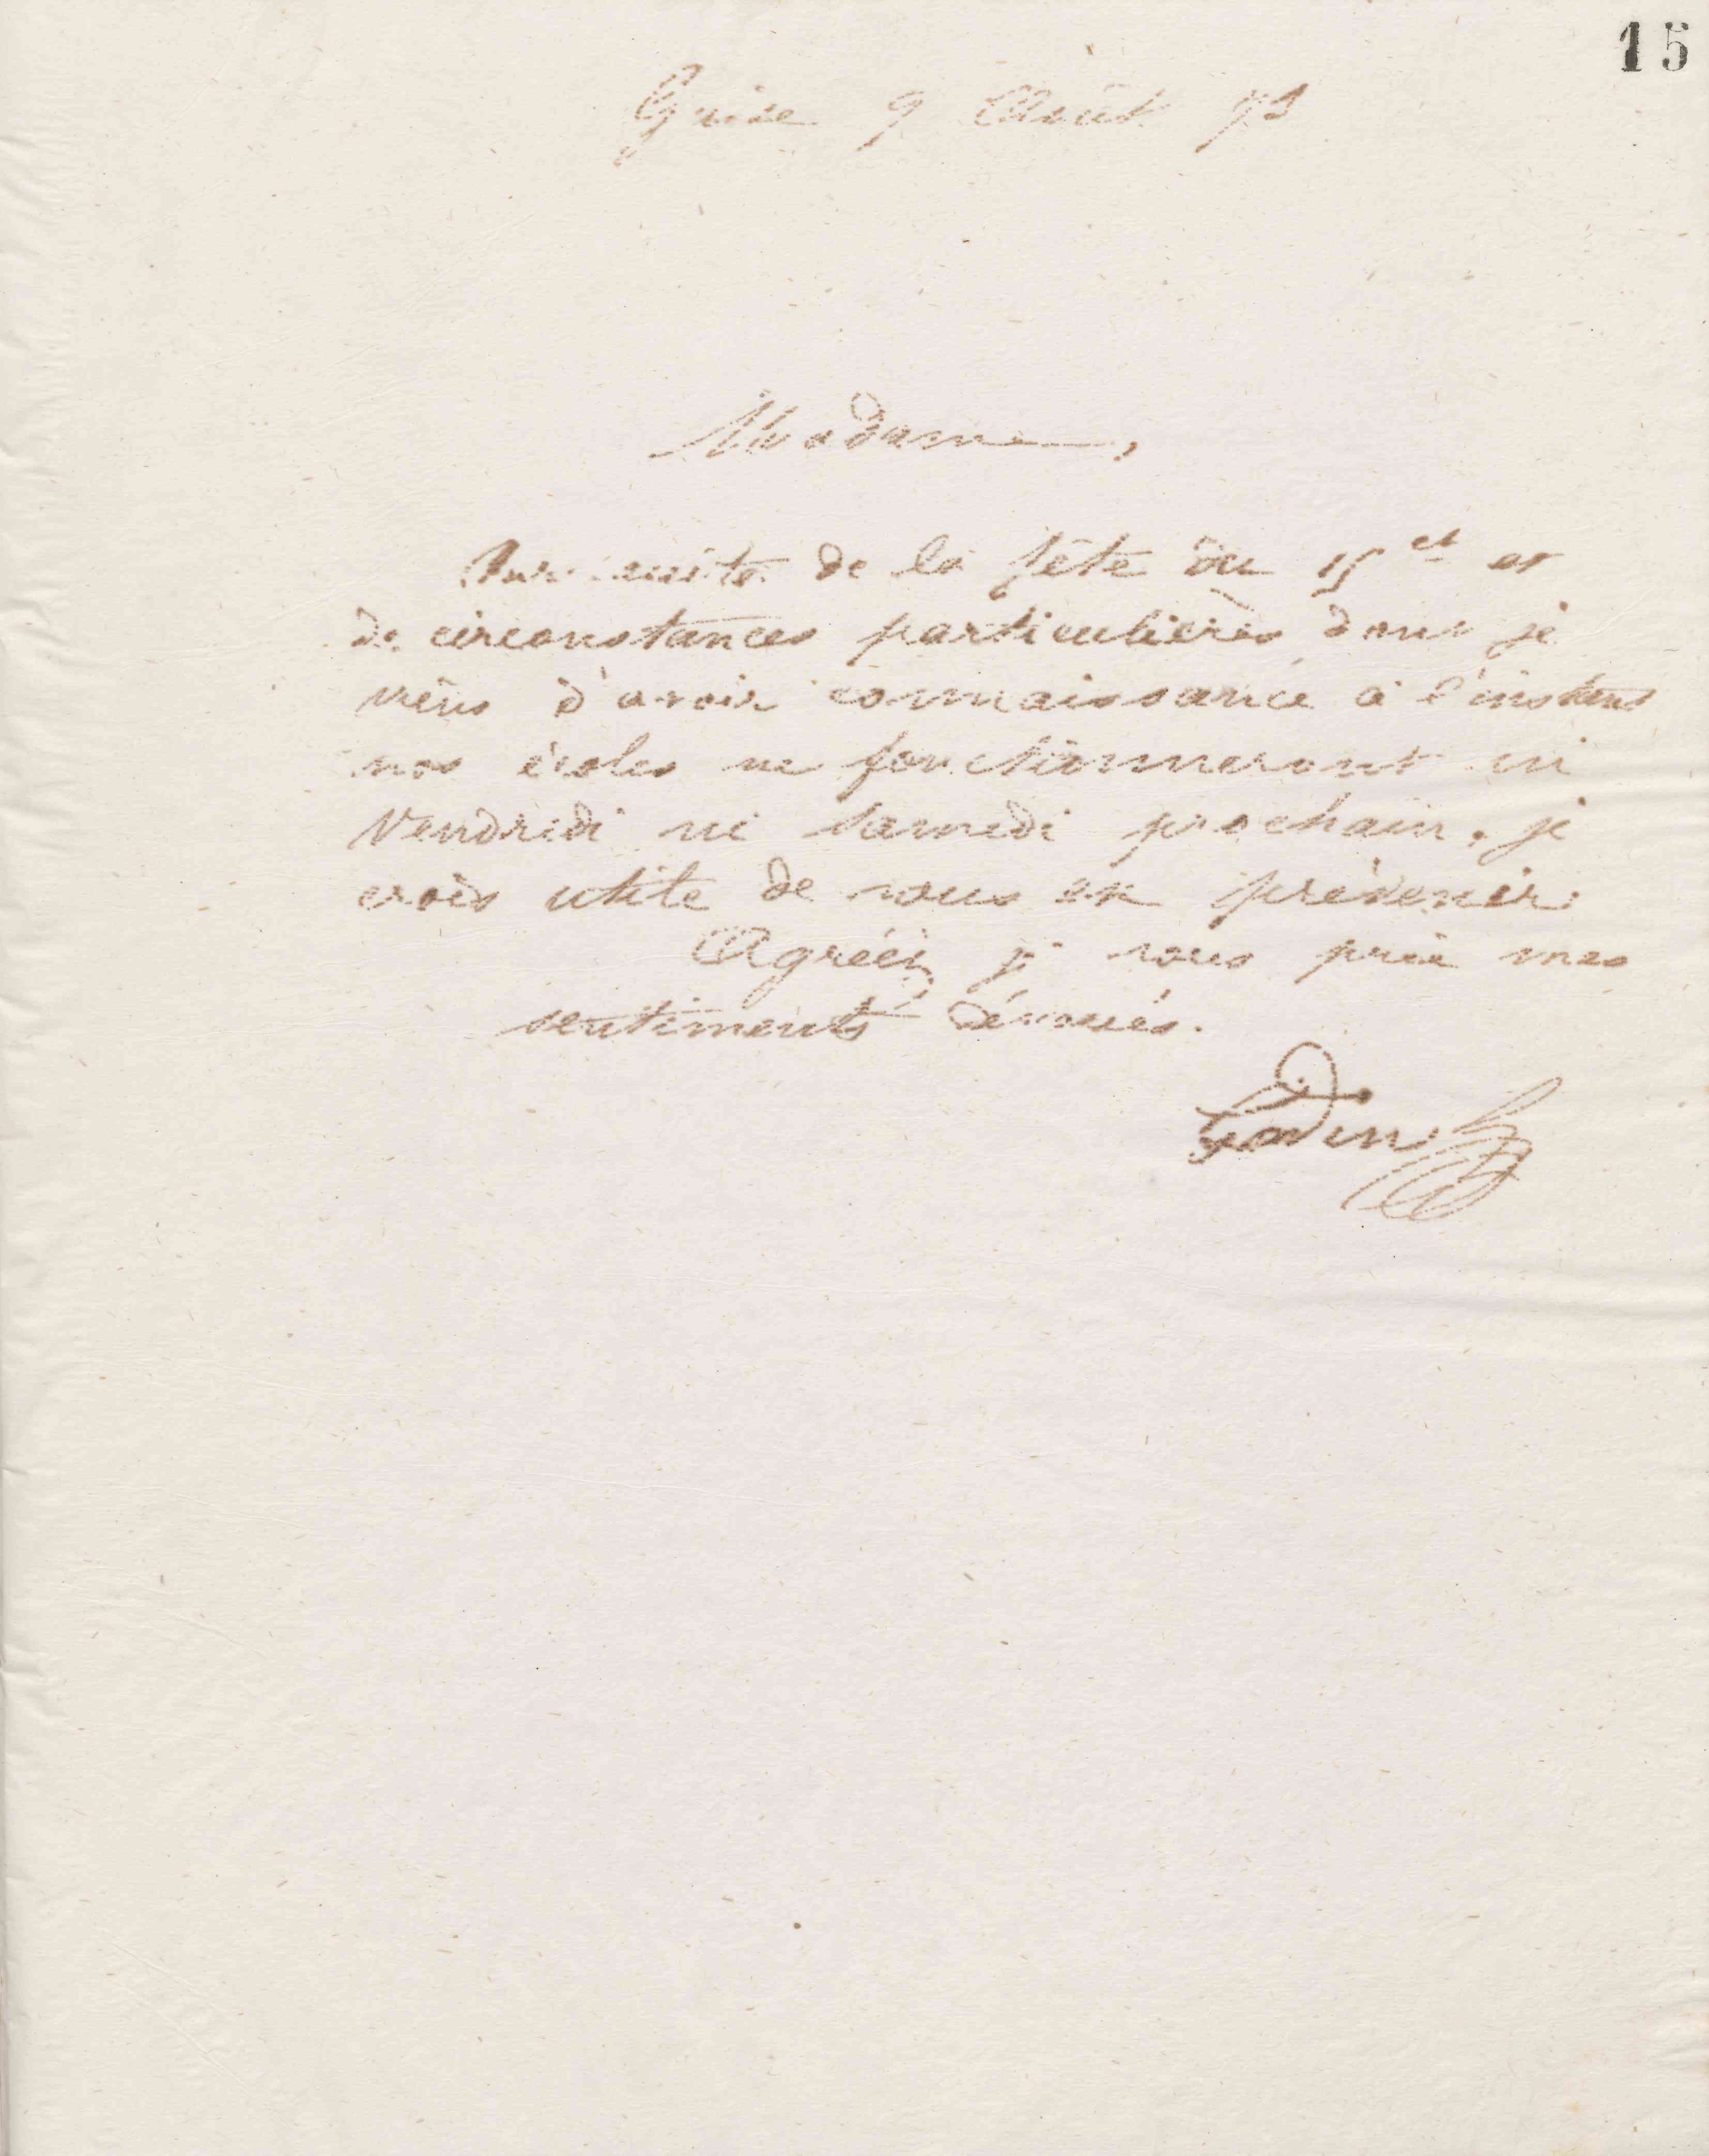 15
Guise 9 Août 73
Madame,
Par suite de la fête du 15 ct et
de circonstances particulières dont je
viens d'avoir connaissance à l'instant
nos écoles ne fonctionneront ni
Vendredi ni Samedi prochain, je
crois utile de vous en prévenir.
Agréez je vous prie mes
sentiments dévoués.
Godin